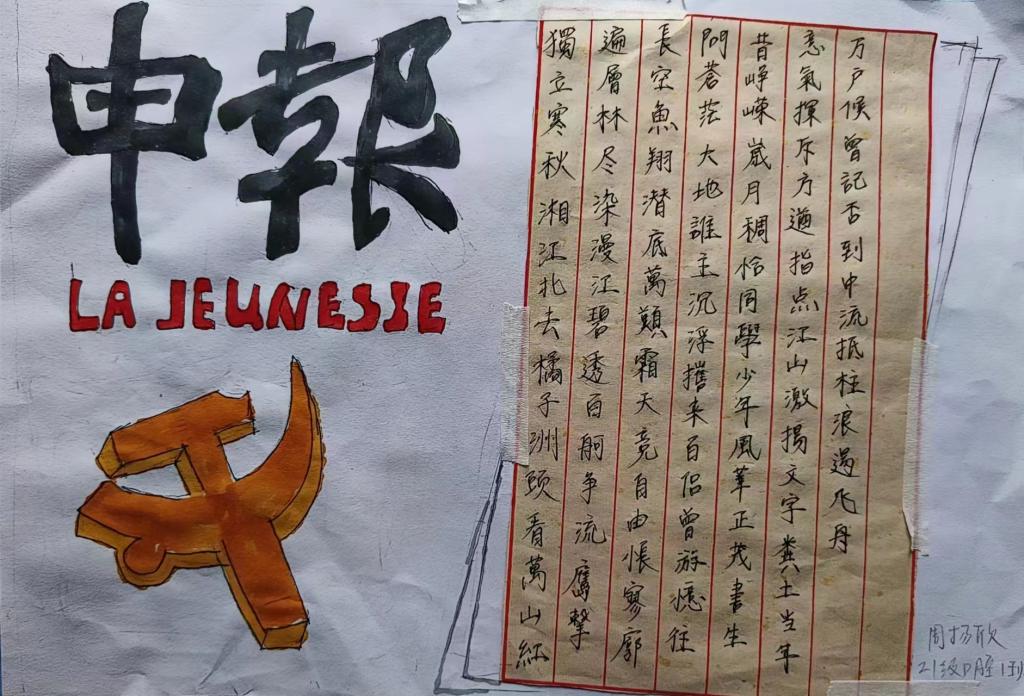 申報
LA JEUNESSE
獨立寒秋湘江北去橘子洲頭看萬山紅
遍層林尽染漫江碧透百舸争流鷹擊
長空魚翔潜底萬類霜天竞自由悵寥廓
問蒼茫大地誰主沉浮攜来百侣曾游憶往
昔崢嶸歲月稠恰同學少年風華正茂書生
意氣揮斥方遒指点江山激揚文字糞土当年
万户候曾記否到中流抵柱浪遏飞舟
周扬欣
21级口腔1班